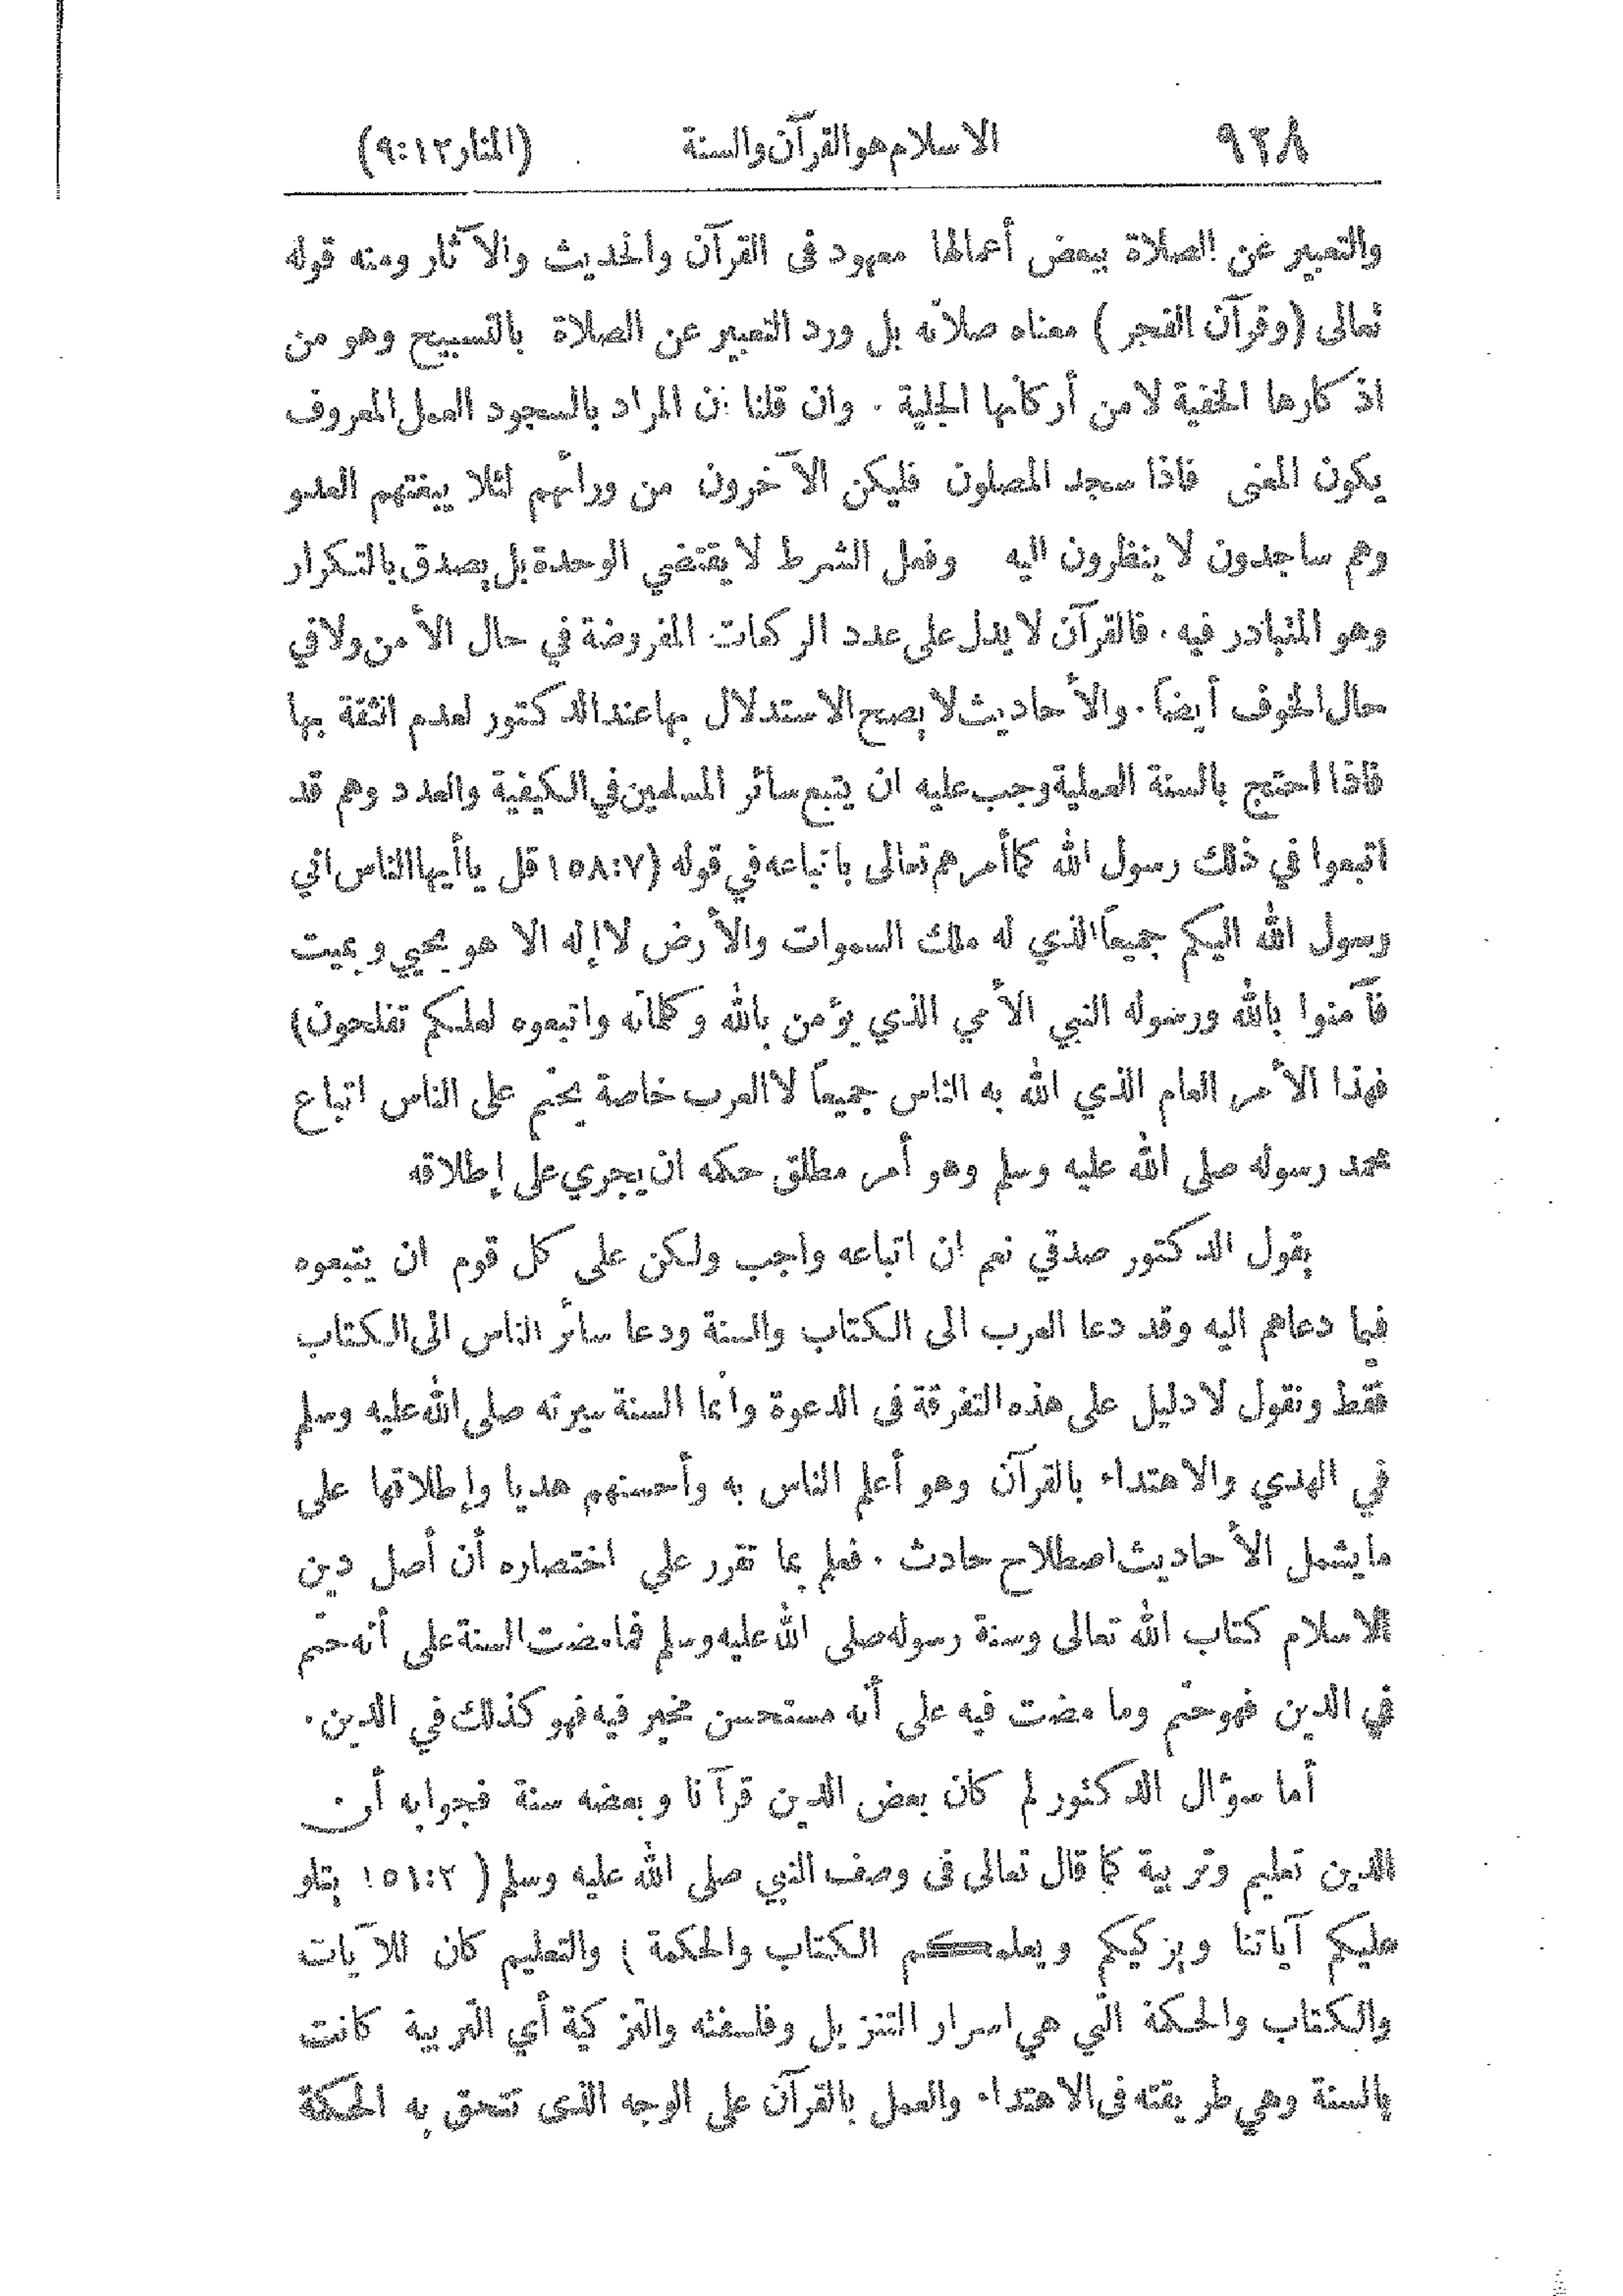 ٩٢٨ الاسلام هو القرآن والسنة (المنار ١٢:٩)
والتعبير عن الصلاة ببعض أعمالها معهود في القرآن والحديث والآثار ومنه قوله
تعالى (وقرآن الفجر) معناه صلاته بل ورد التعبير عن الصلاة بالتسبيح وهو من
اذكارها الخفية لا من أركانها الجلية . وان قلنا ان المراد بالسجود العمل المعروف
يكون المعنى فاذا سجد المصلون فليكن الآخرون من ورائهم لئلا يبغتهم العدو
وهم ساجدون لا ينظرون اليه وفعل الشرط لا يقتضي الوحدة بل يصدق بالتكرار
وهو المتبادر فيه . فالقرآن لا يدل على عدد الركعات المفروضة في حال الأمن ولا في
حال الخوف أيضاً . والأحاديث لا يصح الاستدلال بها عند الدكتور لعدم الثقة بها
فاذا احتج بالسنة العملية وجب عليه ان يتبع سائر المسلمين في الكيفية والعدد وهم قد
اتبعوا في ذلك رسول الله كما أمرهم تعالى باتباعه في قوله (١٥٨:٧ قل يا أيها الناس اني
رسول الله اليكم جميعاً الذي له ملك السموات والأرض لا إله الا هو يحيي ويميت
فآمنوا بالله ورسوله النبي الأمي الذي يؤمن بالله وكلماته واتبعوه لعلكم تفلحون)
فهذا الأمر العام الذي الله به الناس جميعاً لا العرب خاصة يحتم على الناس اتباع
محمد رسوله صلى الله عليه وسلم وهو أمر مطلق حكمه ان يجري على إطلاقه
يقول الدكتور صدقي نعم ان اتباعه واجب ولكن على كل قوم ان يتبعوه
فيما دعاهم اليه وقد دعا العرب الى الكتاب والسنة ودعا سائر الناس الى الكتاب
فقط ونقول لا دليل على هذه التفرقة في الدعوة وانما السنة سيرته صلى الله عليه وسلم
في الهدي والاهتداء بالقرآن وهو أعلم الناس به وأحسنهم هديا وإطلاقها على
ما يشمل الأحاديث اصطلاح حادث . فعلم بما تقرر على اختصاره أن أصل دين
الاسلام كتاب الله تعالى وسنة رسوله صلى الله عليه وسلم فما مضت السنة على أنه حتم
في الدين فهو حتم وما مضت فيه على أنه مستحسن مخير فيه فهو كذلك في الدين .
أما سؤال الدكتور لم كان بعض الدين قرآنا وبعضه سنة فجوابه أن
الدين تعليم وتربية كما قال تعالى في وصف النبي صلى الله عليه وسلم (١٥١:٢ يتلو
عليكم آياتنا ويزكيكم ويعلمكم الكتاب والحكمة) والتعليم كان للآيات
والكتاب والحكمة التي هي اسرار التنزيل وفلسفته والتزكية أي التربية كانت
بالسنة وهي طريقته في الاهتداء والعمل بالقرآن على الوجه الذي تتحقق به الحكمة